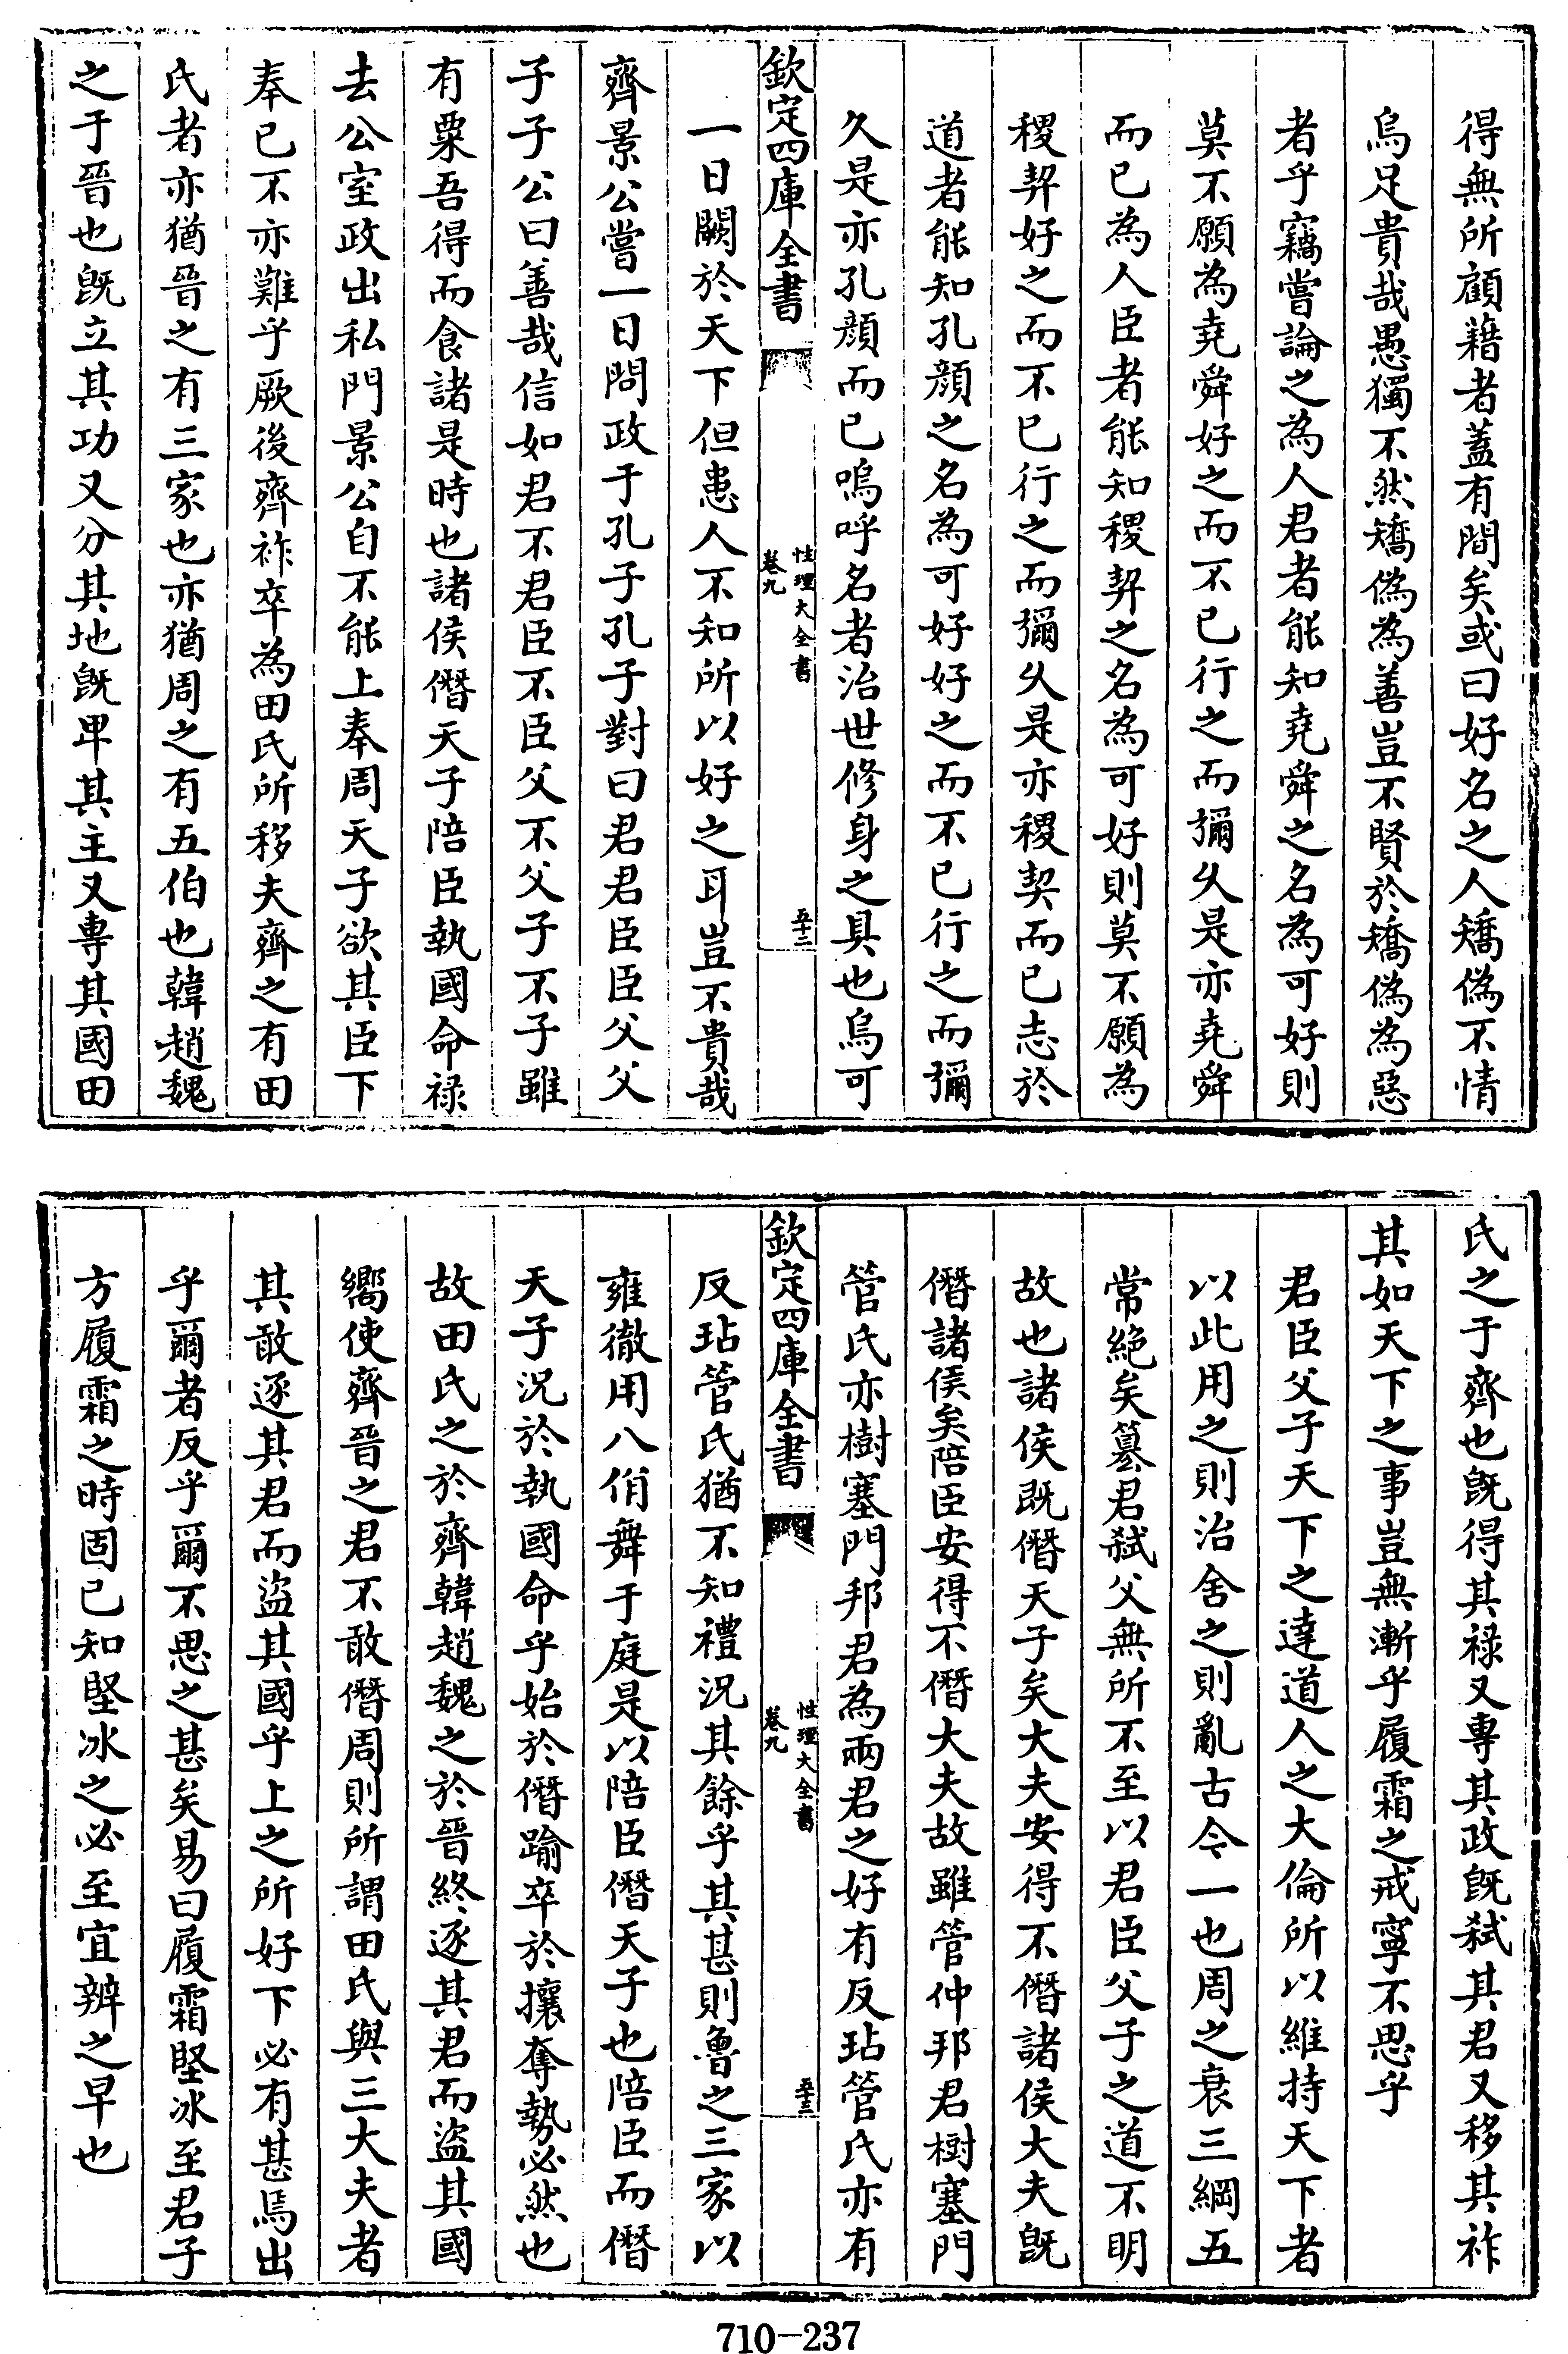 得無所顧藉者蓋有間矣或曰好名之人矯偽不情
烏足貴哉愚獨不然矯偽為善豈不賢於矯偽為惡
者乎竊嘗論之為人君者能知堯舜之名為可好則
莫不願為堯舜好之而不已行之而彌乆是亦堯舜
而已為人臣者能知稷契之名為可好則莫不願為
稷契好之而不已行之而彌乆是亦稷契而已志於
道者能知孔顔之名為可好好之而不已行之而彌
久是亦孔顔而已嗚呼名者治世修身之具也烏可
欽定四庫全書
性理大全書
卷九
五十二
一日闕於天下但患人不知所以好之耳豈不貴哉
齊景公嘗一日問政于孔子孔子對曰君君臣臣父父
子子公曰善哉信如君不君臣不臣父不父子不子雖
有粟吾得而食諸是時也諸侯僭天子陪臣執國命禄
去公室政出私門景公自不能上奉周天子欲其臣下
奉已不亦難乎厥後齊祚卒為田氏所移夫齊之有田
氏者亦猶晉之有三家也亦猶周之有五伯也韓趙魏
之于晉也旣立其功又分其地旣卑其主又專其國田
氏之于齊也旣得其禄又專其政旣弑其君又移其祚
其如天下之事豈無漸乎履霜之戒寧不思乎
君臣父子天下之達道人之大倫所以維持天下者
以此用之則治舍之則亂古今一也周之衰三綱五
常絶矣簒君弑父無所不至以君臣父子之道不明
故也諸侯既僭天子矣大夫安得不僭諸侯大夫旣
僭諸侯矣陪臣安得不僭大夫故雖管仲邦君樹塞門
管氏亦樹塞門邦君為兩君之好有反玷管氏亦有
欽定四庫全書
性理大全書
卷九
五十三
反玷管氏猶不知禮況其餘乎其甚則魯之三家以
雍徹用八佾舞于庭是以陪臣僭天子也陪臣而僭
天子況於執國命乎始於僭踰卒於攘奪勢必然也
故田氏之於齊韓趙魏之於晉終逐其君而盜其國
嚮使齊晉之君不敢僭周則所謂田氏與三大夫者
其敢逐其君而盜其國乎上之所好下必有甚焉出
乎爾者反乎爾不思之甚矣易曰履霜堅冰至君子
方履霜之時固已知堅冰之必至宜辨之早也
710-237